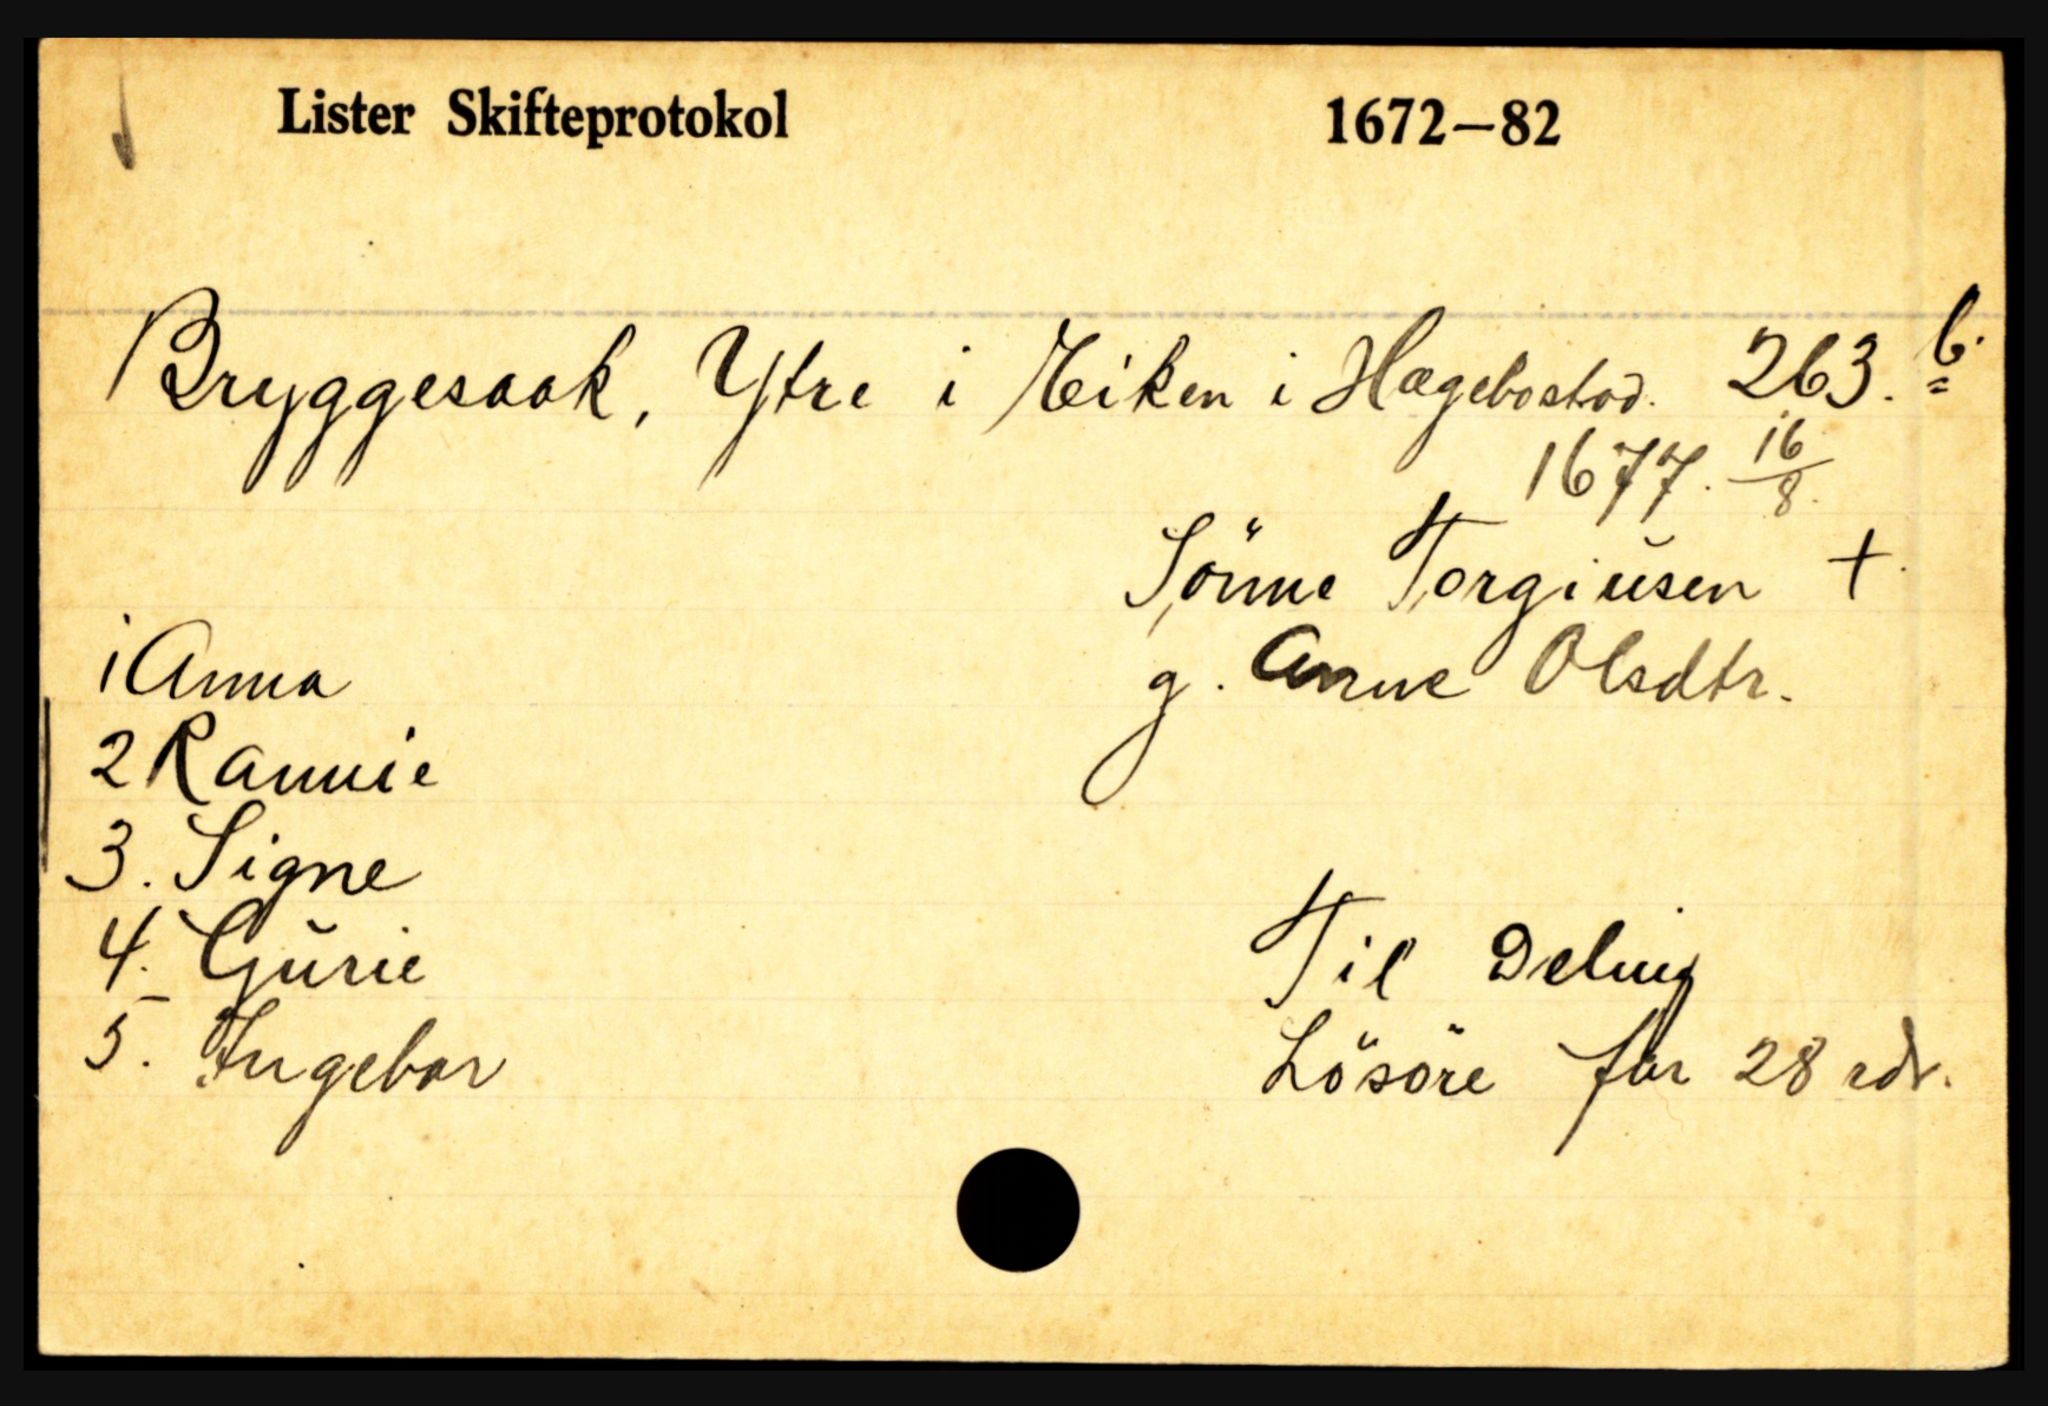 Lister Skifteprotokol 1672—82
Bryggesaak, Ytre i Eiken i Hægebostad. 263. b.
1677. 16/8.
Sönne Torgiusen +
g. Anne Olsdtr.
1 Anna
2 Rannie
3. Signe
4. Gurie
5. Ingebor
Til Deling
Lösöre for 28 rdr.